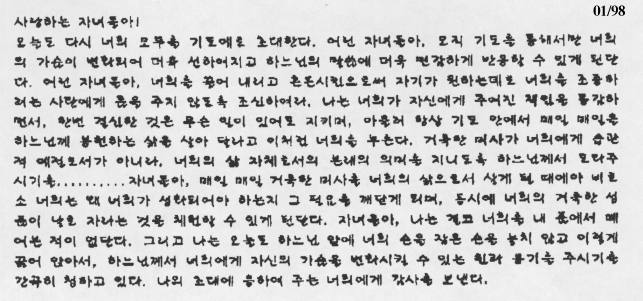 01/98
사랑하는 자녀들아!
오늘도 다시 너희 모두를 기도에로 초대한다. 어린 자녀들아, 오직 기도를 통해서만 너희
의 가슴이 변화되어 더욱 선하여지고 하느님의 말씀에 더욱 민감하게 반응할 수 있게 된단
다. 어린 자녀들아, 너희를 끌어 내리고 혼돈시킴으로써 자기가 원하는데로 너희를 조종하
려는 사탄에게 틈을 주지 않도록 조심하여라. 나는 너희가 자신에게 주어진 책임을 통감하
면서, 한번 결심한 것은 무슨 일이 있어도 지키며, 아울러 항상 기도 안에서 매일 매일을
하느님께 봉헌하는 삶을 살아 달라고 이처럼 너희를 부른다. 거룩한 미사가 너희에게 습관
적 예절로서가 아니라, 너희의 삶 자체로서의 본래의 의미를 지니도록 하느님께서 도와주
시기를.......... 자녀들아, 매일 매일 거룩한 미사를 너희의 삶으로서 살게 될 때에야 비로
소 너희는 왜 너희가 성화되어야 하는지 그 필요를 깨닫게 되며, 동시에 너희의 거룩한 성
품이 날로 자라는 것을 체험할 수 있게 된단다. 자녀들아, 나는 결코 너희를 내 품에서 떼
어놓은 적이 없단다. 그리고 나는 오늘도 하느님 앞에 너희 손을 잡은 손을 놓치 않고 이렇게
꿇어 앉아서, 하느님께서 너희에게 자신의 가슴을 변화시킬 수 있는 힘과 용기를 주시기를
간곡히 청하고 있다. 나의 초대에 응하여 주는 너희에게 감사를 보낸다.